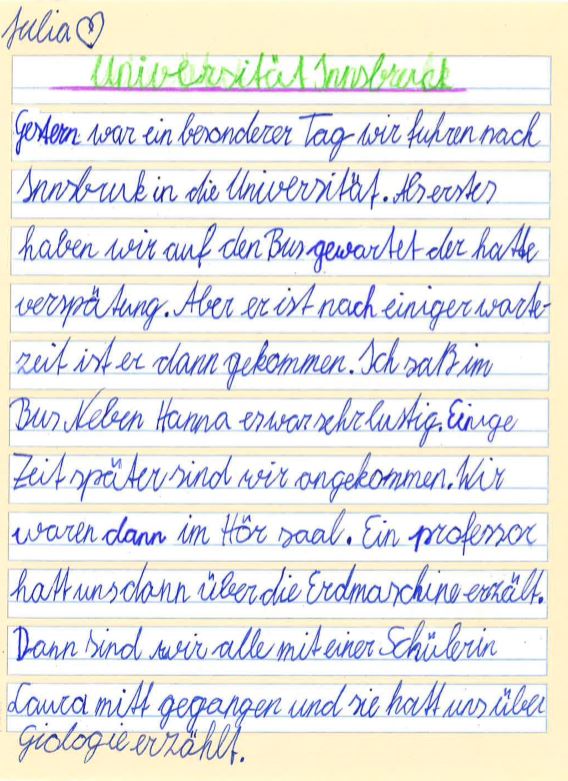 Julia ♡
Universität Innsbruck
Gestern war ein besonderer Tag wir fuhren nach
Innsbruk in die Universität. Als erstes
haben wir auf den Bus gewartet der hatte
verspätung. Aber er ist nach einiger warte-
zeit ist er dann gekommen. Ich saß im
Bus Neben Hanna es war sehr lustig. Einige
Zeit später sind wir angekommen. Wir
waren dann im Hör saal. Ein professor
hatt uns dann über die Erdmaschine erzält.
Dann sind wir alle mit einer Schülerin
Laura mitt gegangen und sie hatt uns über
Giologie erzählt.